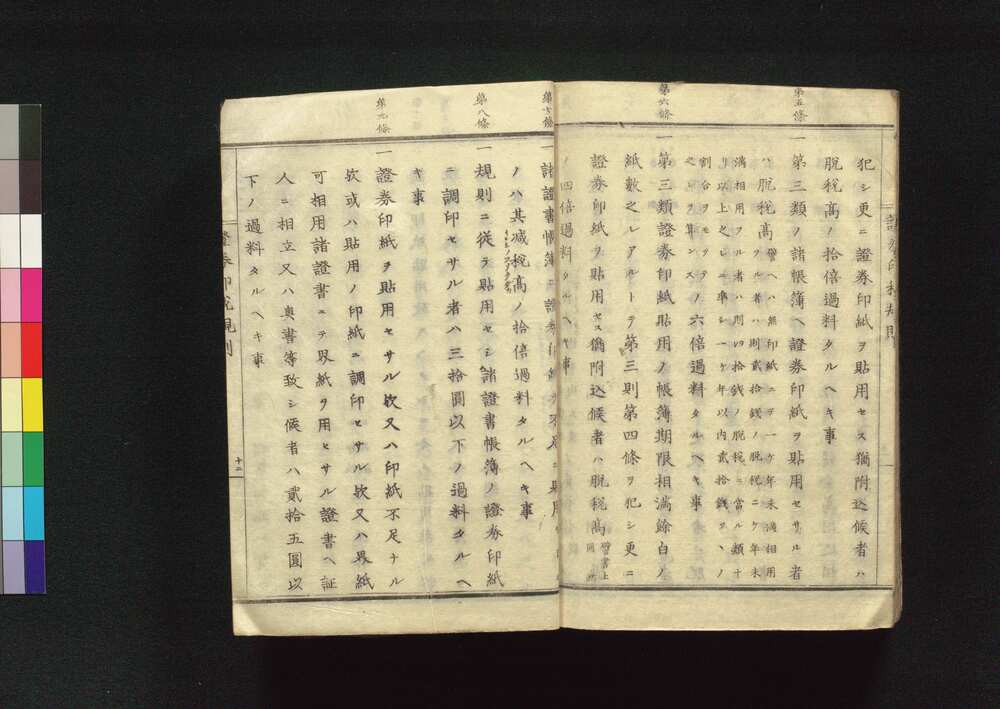 犯シ更ニ證券印紙ヲ貼用セス猶附込候者ハ
脫稅高ノ拾倍過料タルヘキ事
第五條
一第三類ノ諸帳簿ヘ證券印紙ヲ貼用セサル者
ハ脫稅高譬ヘハ無印紙ニテ一ケ年未滿相用ヲル者ハ則貳拾錢ノ脫稅ニケ年未
滿相用フル者ハ則四拾錢ノ脫稅ニ當ル類十
リ以上之レニ準シ一ケ年以內貳拾錢ヲ、ノ
割合ヲモッテ之レヲ算ンスノ六倍過料タルヘキ事
第六條
一第三類證券印紙貼用ノ帳簿期限相滿餘白ノ
紙數之レアルトテ第三則第四條ヲ犯シ更ニ
證券印紙ヲ貼用セス猶附込候者ハ脫稅高譬書上同斷
ノ四倍過料タルヘキ事
第七條
一諸證書帳簿
ノハ其減稅高ノ拾倍過料タルヘキ事
第八條
一規則ニ從テ貼用セシ諸證書帳簿ノ證券印紙
ニ調印セサル者ハ三拾圓以下ノ過料タルヘ
キ事
第九條
一證券印紙ヲ貼用セサル欤又ハ印紙不足ナル
欤或ハ貼用ノ印紙ニ調印セサル欤又ハ界紙
可相用諸證書ニテ界紙ヲ用ヒサル證書ヘ証
人ニ相立又ハ奧書等致シ候者ハ貳拾五圓以
下ノ過料タルヘキ事
證券印稅規則
十二